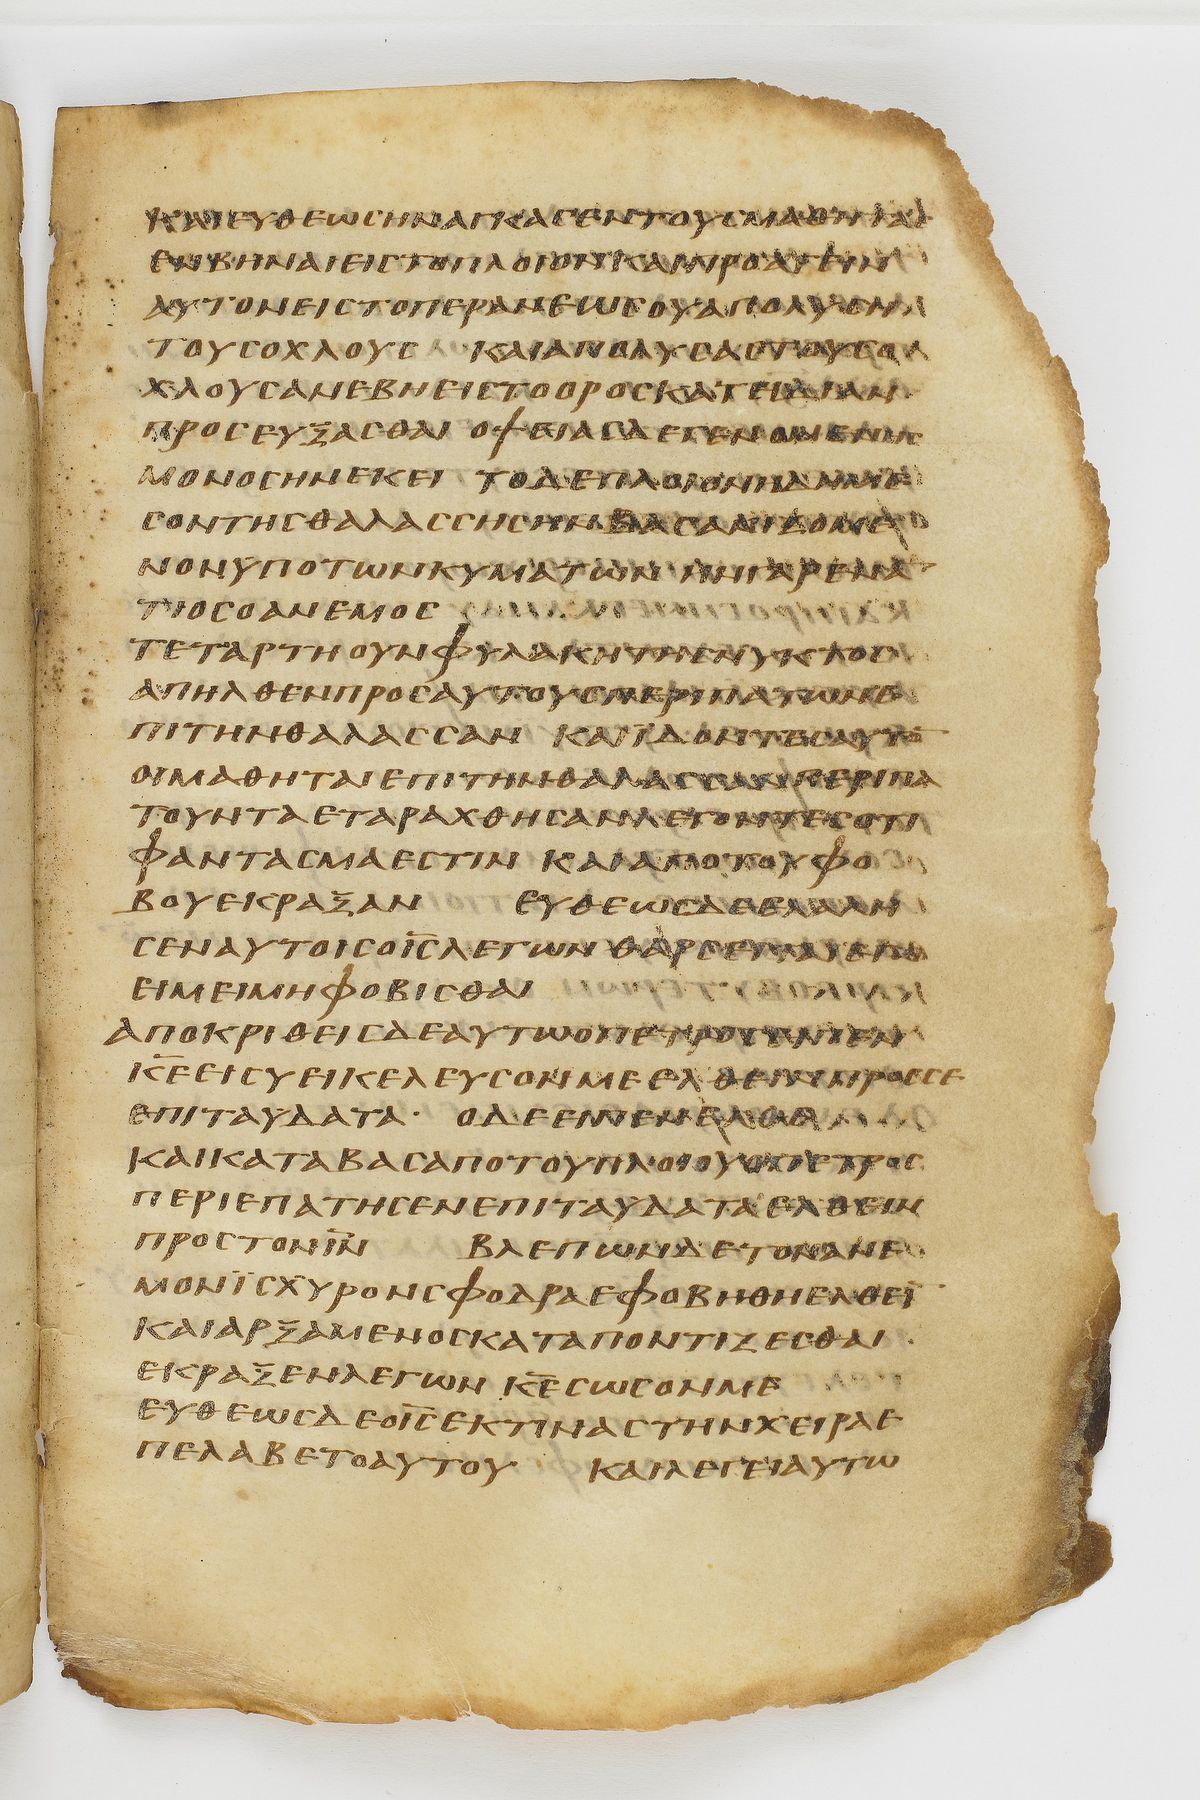 ΚΑΙΕΥΘΕΩCΗΝΑΓΚΑCΕΝΤΟΥCΜΑΘΗΤΑC
ΕΜΒΗΝΑΙΕΙCΤΟΠΛΟΙΟΝΚΑΙΠΡΟΑΓΕΙΝ
ΑΥΤΟΝΕΙCΤΟΠΕΡΑΝΕΩCΟΥΑΠΟΛΥCΗ
ΤΟΥCΟΧΛΟΥC ΚΑΙΑΠΟΛΥCΑCΤΟΥCΟ
ΧΛΟΥCΑΝΕΒΗΕΙCΤΟΟΡΟCΚΑΤΕΙΔΙΑΝ
ΠΡΟCΕΥΞΑCΘΑΙ ΟΨΕΙΑCΔΕΓΕΝΟΜΕΝΗC
ΜΟΝΟCΗΝΕΚΕΙ ΤΟΔΕΠΛΟΙΟΝΗΔΗΜΕ
CΟΝΤΗCΘΑΛΑCCΗCΗΝΒΑCΑΝΙΖΟΜΕ
ΝΟΝΥΠΟΤΩΝΚΥΜΑΤΩΝ ΗΝΓΑΡΕΝΑ
ΤΙΟCΟΑΝΕΜΟC
ΤΕΤΑΡΤΗΟΥΝΦΥΛΑΚΗΤΗCΝΥΚΤΟC
ΑΠΗΛΘΕΝΠΡΟCΑΥΤΟΥCΠΕΡΙΠΑΤΩΝΕ
ΠΙΤΗΝΘΑΛΑCCΑΝ ΚΑΙΪΔΟΝΤΕCΑΥΤΟ̅
ΟΙΜΑΘΗΤΑΙΕΠΙΤΗΝΘΑΛΑCCΑΝΠΕΡΙΠΑ
ΤΟΥΝΤΑΕΤΑΡΑΧΘΗCΑΝΛΕΓΟΝΤΕCΟΤΙ
ΦΑΝΤΑCΜΑΕCΤΙΝ ΚΑΙΑΠΟΤΟΥΦΟ
ΒΟΥΕΚΡΑΞΑΝ ΕΥΘΕΩCΔΕΕΛΑΛΗ
CΕΝΑΥΤΟΙCΟΙ̅C̅ΛΕΓΩΝΘΑΡCΕΙΤΕΕΓΩ
ΕΙΜΕΙΜΗΦΟΒΙCΘΑΙ
ΑΠΟΚΡΙΘΕΙCΔΕΑΥΤΩΟΠΕΤΡΟCΕΙΠΕΝ
Κ̅Ε̅ΕΙCΥΕΙΚΕΛΕΥCΟΝΜΕΕΛΘΕΙΝΠΡΟCCΕ
ΕΠΙΤΑΥΔΑΤΑ · ΟΔΕΕΙΠΕΝΕΛΘΕ
ΚΑΙΚΑΤΑΒΑCΑΠΟΤΟΥΠΛΟΙΟΥΟΠΕΤΡΟC
ΠΕΡΙΕΠΑΤΗCΕΝΕΠΙΤΑΥΔΑΤΑΕΛΘΕΙΝ
ΠΡΟCΤΟΝΙ̅Ν̅ ΒΛΕΠΩΝΔΕΤΟΝΑΝΕ
ΜΟΝΪCΧΥΡΟΝCΦΟΔΡΑΕΦΟΒΗΘΗΕΛΘΕΙ̅
ΚΑΙΑΡΞΑΜΕΝΟCΚΑΤΑΠΟΝΤΙΖΕCΘΑΙ
ΕΚΡΑΞΕΝΛΕΓΩΝ Κ̅Ε̅CΩCΟΝΜΕ
ΕΥΘΕΩCΔΕΟΙ̅C̅ΕΚΤΙΝΑCΤΗΝΧΕΙΡΑΕ
ΠΕΛΑΒΕΤΟΑΥΤΟΥ ΚΑΙΛΕΓΕΙΑΥΤΩ